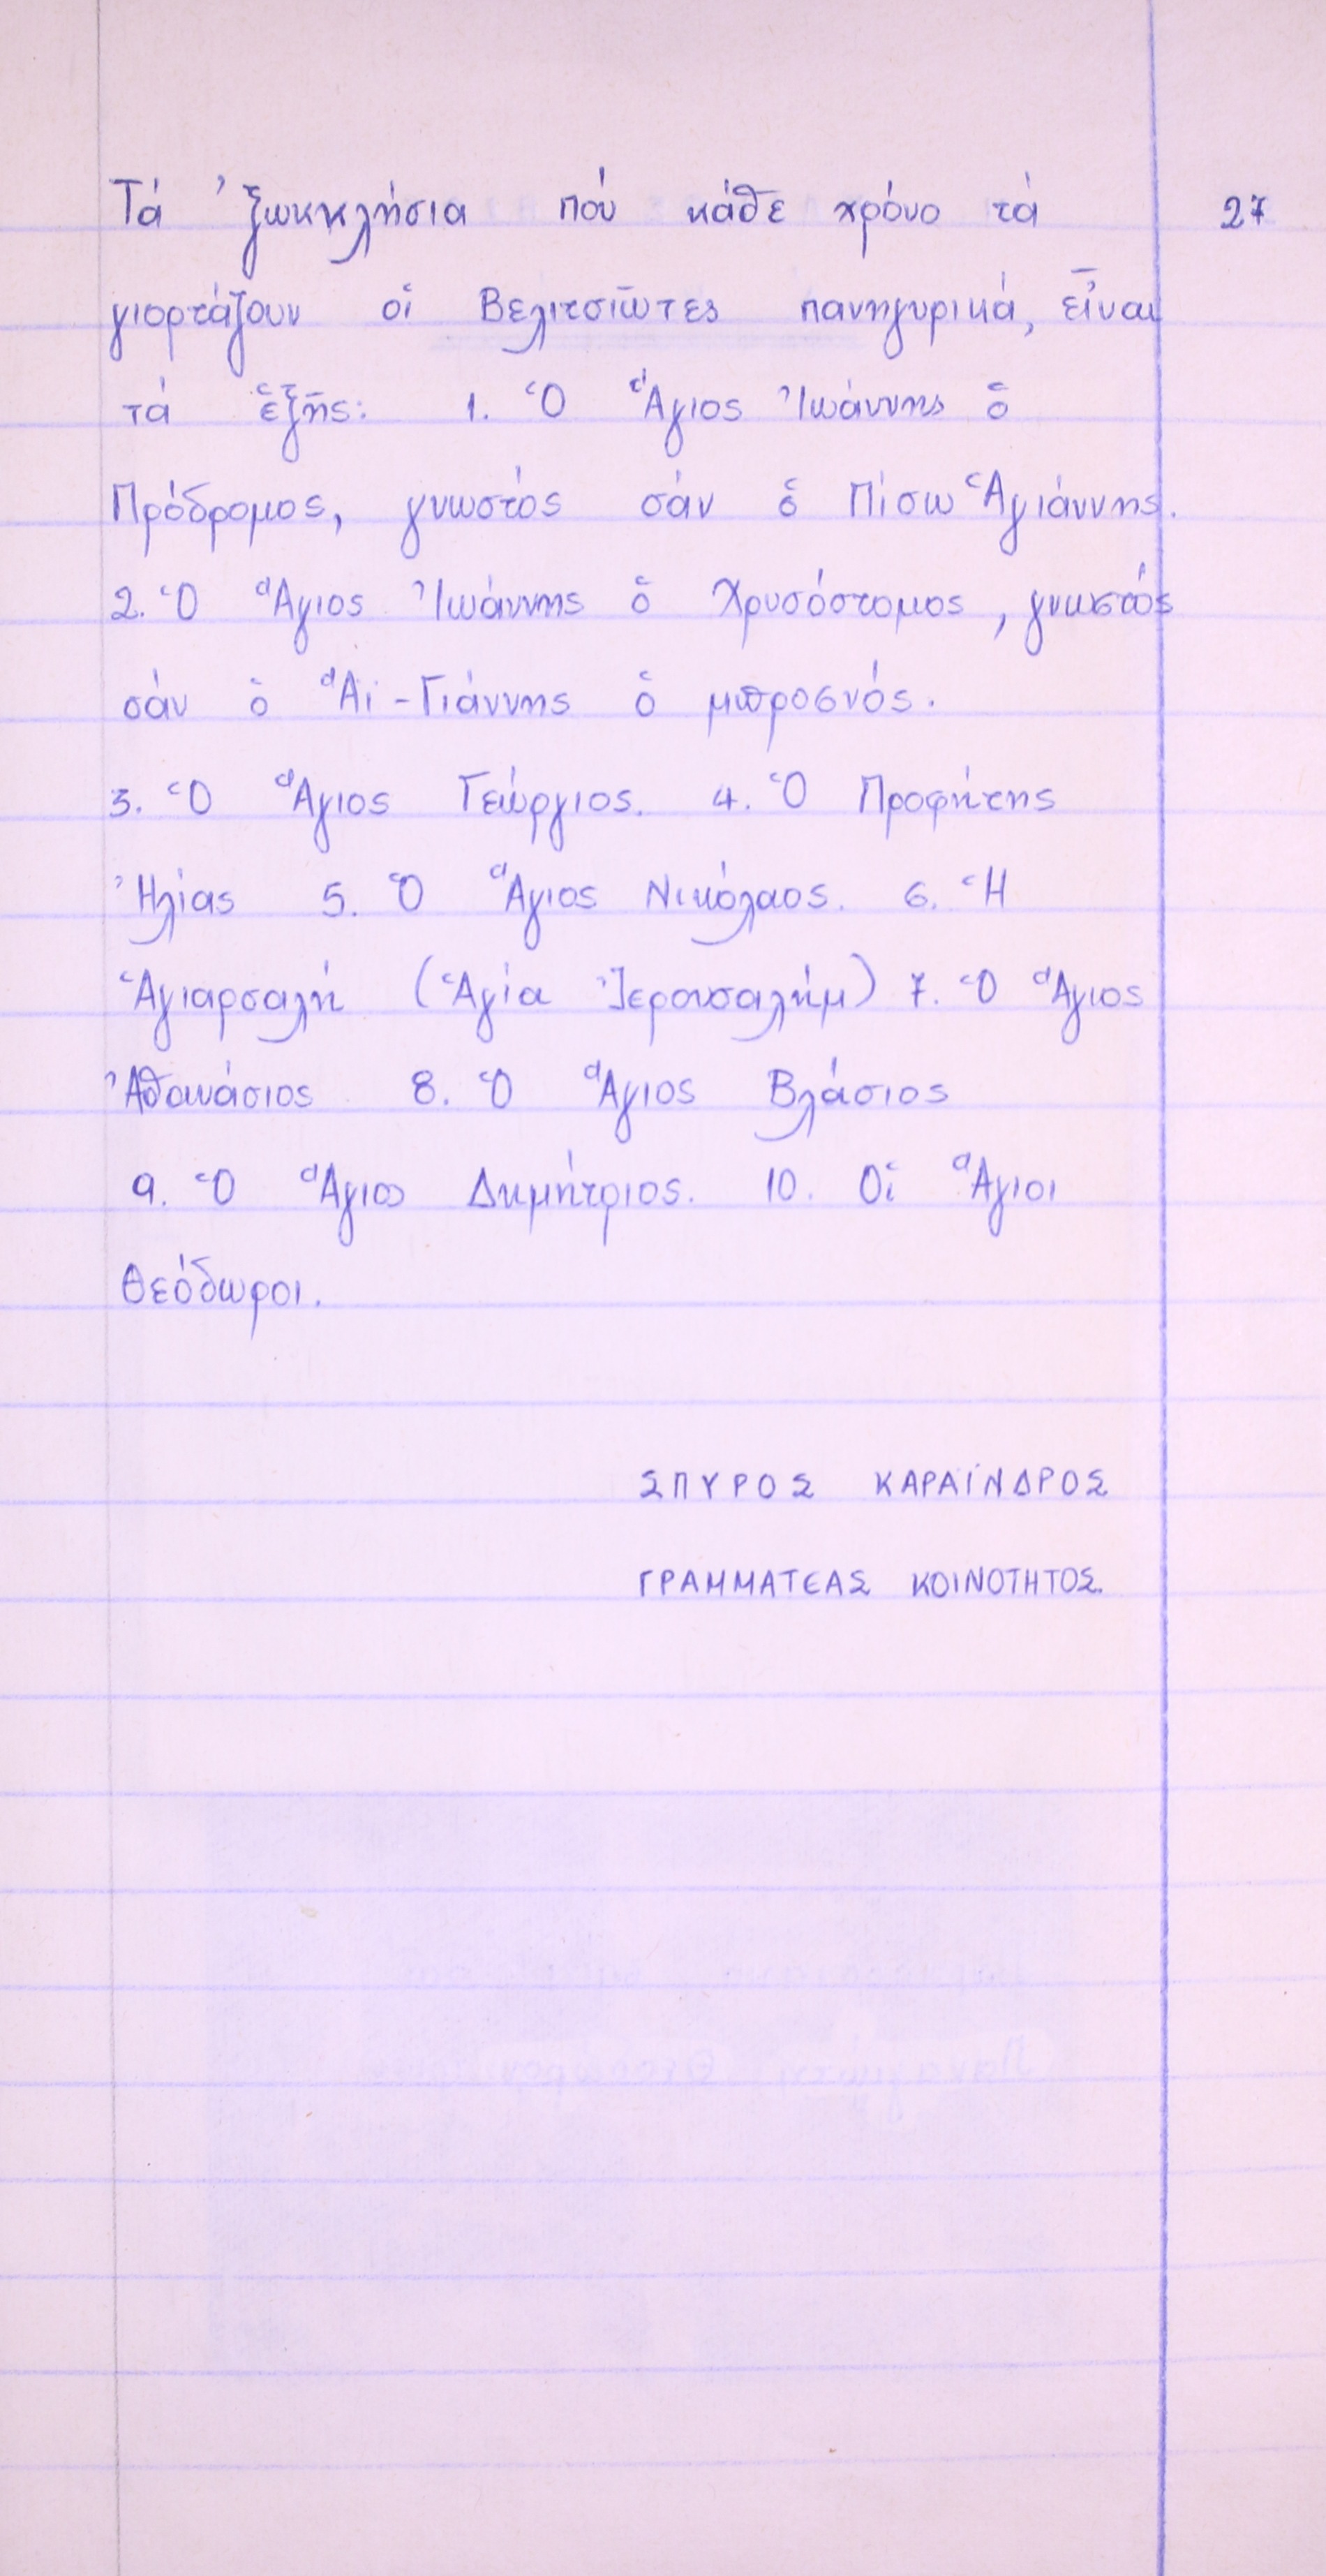 Τά 'ξωκκλήσια πού κάθε χρόνο τά 27
γιορτάζουν οἱ Βελιτσιῶτες πανηγυρικά, εἶναι
τά ἑξῆς: 1. Ὁ Ἅγιος Ἰωάννης ὁ
Πρόδρομος, γνωστός σάν ὁ Πίσω Ἁγιάννης.
2. Ὁ Ἅγιος Ἰωάννης ὁ Χρυσόστομος, γνωστός
σάν ὁ Ἅϊ-Γιάννης ὁ μπροσνός.
3. Ὁ Ἅγιος Γεώργιος. 4. Ὁ Προφήτης
Ἠλίας 5. Ὁ Ἅγιος Νικόλαος. 6. Ἡ
Ἁγιαρσαλή (Ἁγία Ἰερουσαλήμ) 7. Ὁ Ἅγιος
Ἀθανάσιος 8. Ὁ Ἅγιος Βλάσιος
9. Ὁ Ἅγιος Δημήτριος. 10. Οἱ Ἅγιοι
Θεόδωροι.
ΣΠΥΡΟΣ ΚΑΡΑΪΝΔΡΟΣ
ΓΡΑΜΜΑΤΕΑΣ ΚΟΙΝΟΤΗΤΟΣ.